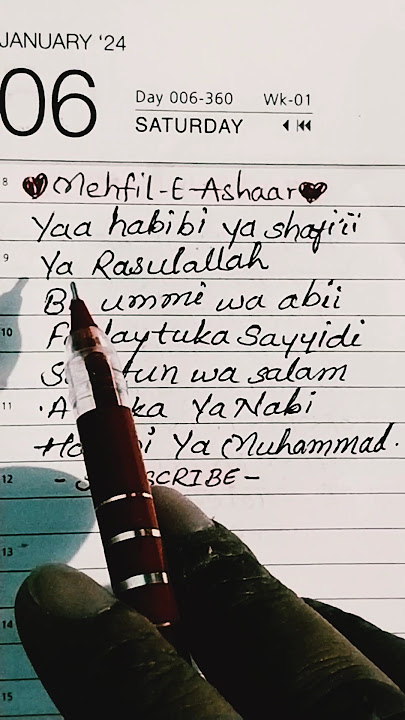 JANUARY '24
06
Day 006-360 Wk-01
SATURDAY
8 Mehfil-E-Ashaar
Yaa habibi ya shafiii
9 Ya Rasulallah
ummi wa abii
10 Sayyidi
wa salam
11 Ya Nabi
Ya Muhammad.
12
13
14
15